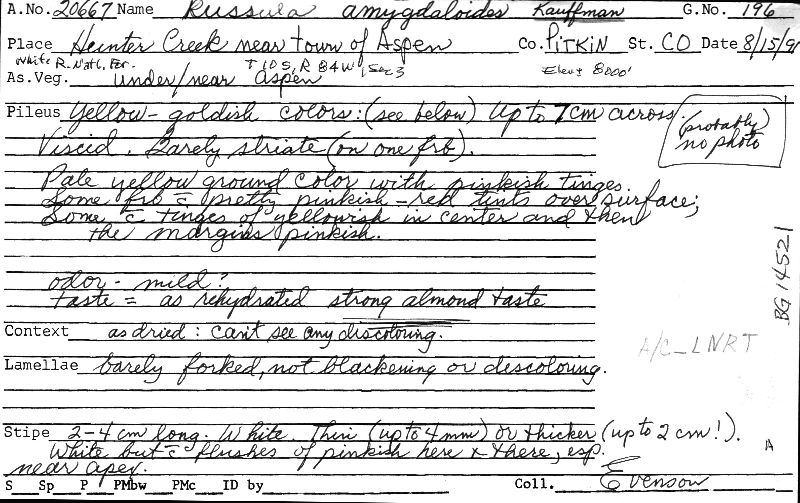 A.No. 20667 Name Russula amygdaloides Kauffman G.No. 196
Place Hunter Creek near town of Aspen Co. PITKIN St. CO Date 8/15/91
White R. Natl. For. T 10 S, R 84W, Sec 3 Elev± 8000'
As.Veg. under/near aspen
Pileus Yellow-goldish colors: (see below) Up to 7cm across.
(probably) no photo
Viscid. Barely striate (on one frb).
Pale yellow ground color with pinkish tinges.
Some frb c̄ pretty pinkish-red tints over surface;
Some c̄ tinges of yellowish in center and then
the margins pinkish.
odor - mild?
taste = as rehydrated strong almond taste
BG 14521
Context as dried: can't see any discoloring.
A/C_LNRT
Lamellae barely forked, not blackening or discoloring.
Stipe 2-4 cm long. White. Thin (up to 4mm) or thicker (up to 2 cm!).
A
White but c̄ flushes of pinkish here & there, esp.
near apex.
S Sp P PMbw PMc ID by Coll. Evenson